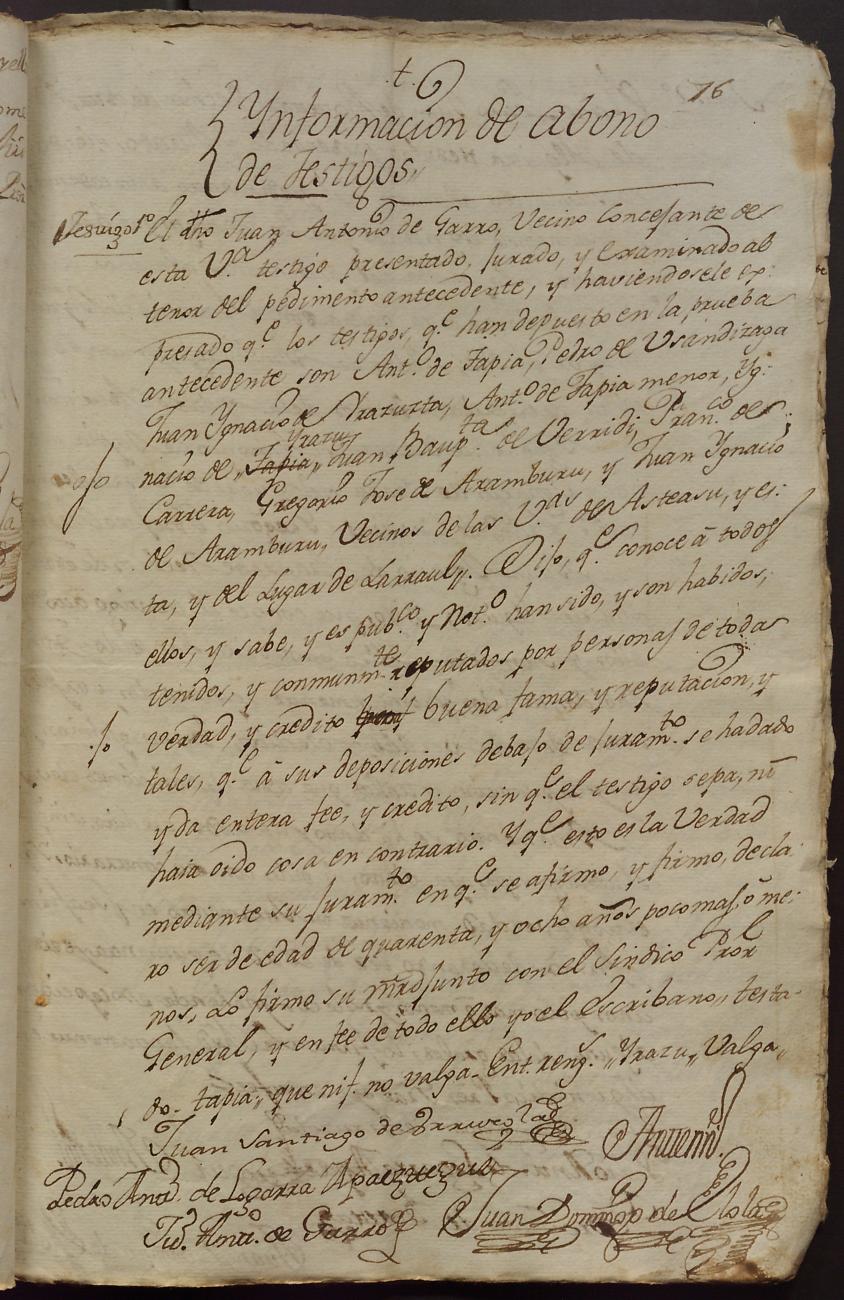 t.
76
Ynformacion de abono
de testigos,,
Testigo 1º
3
El dho Juan Antonio de Garro, Vecino Concejante de
esta Vª. testigo presentado, jurado, y examinado al
tenor del pedimento antecedente, y haviendosele ex-
presado q.e los testigos, q.e han depuesto en la prueba
antecedente son Ant.º de Tapia, Pedro de Usandizaga
Juan Ygnacio de Yrazuzta, Ant.º de Tapia menor, Yg-
Yrazu
nacio de ,,Tapia,, Juan Baup.ta de Verridi, Fran.co de
Carrera, Gregorio Jose de Aramburu, y Juan Ygnacio
de Aramburu, Vecinos de las V.as de Asteasu, y es-
ta, y del Lugar de Larraul,,. Dijo, q.e conoce â todos
ellos, y sabe, y es pub.co y Not.º han sido, y son habidos,
tenidos, y conmunm.te reputados por personas de toda
verdad, y credito buena fama, y reputacion, y
tales, q.e â sus deposiciones debajo de juram.to se ha dado
y da entera fee, y credito, sin q.e el testigo sepa, ni
haia oido cosa en contrario. Y q.e esto es la Verdad
mediante su juram.to en q.e se afirmo, y firmo, decla-
ro ser de edad de quarenta, y ocho años poco mas, ô me-
nos, Lo firmo su mrd junto con el Sindico Pror
General, y en fee de todo ello yo el Escribano,, testa-
do- tapia,, que nis. no valga- Ent. reng.s ,,Yrazu,, Valga,,
Juan Santiago de
Antemi
Pedro Antº. de Lizarra
Juº. Antº. de Garro
Juan Domingo de Elola